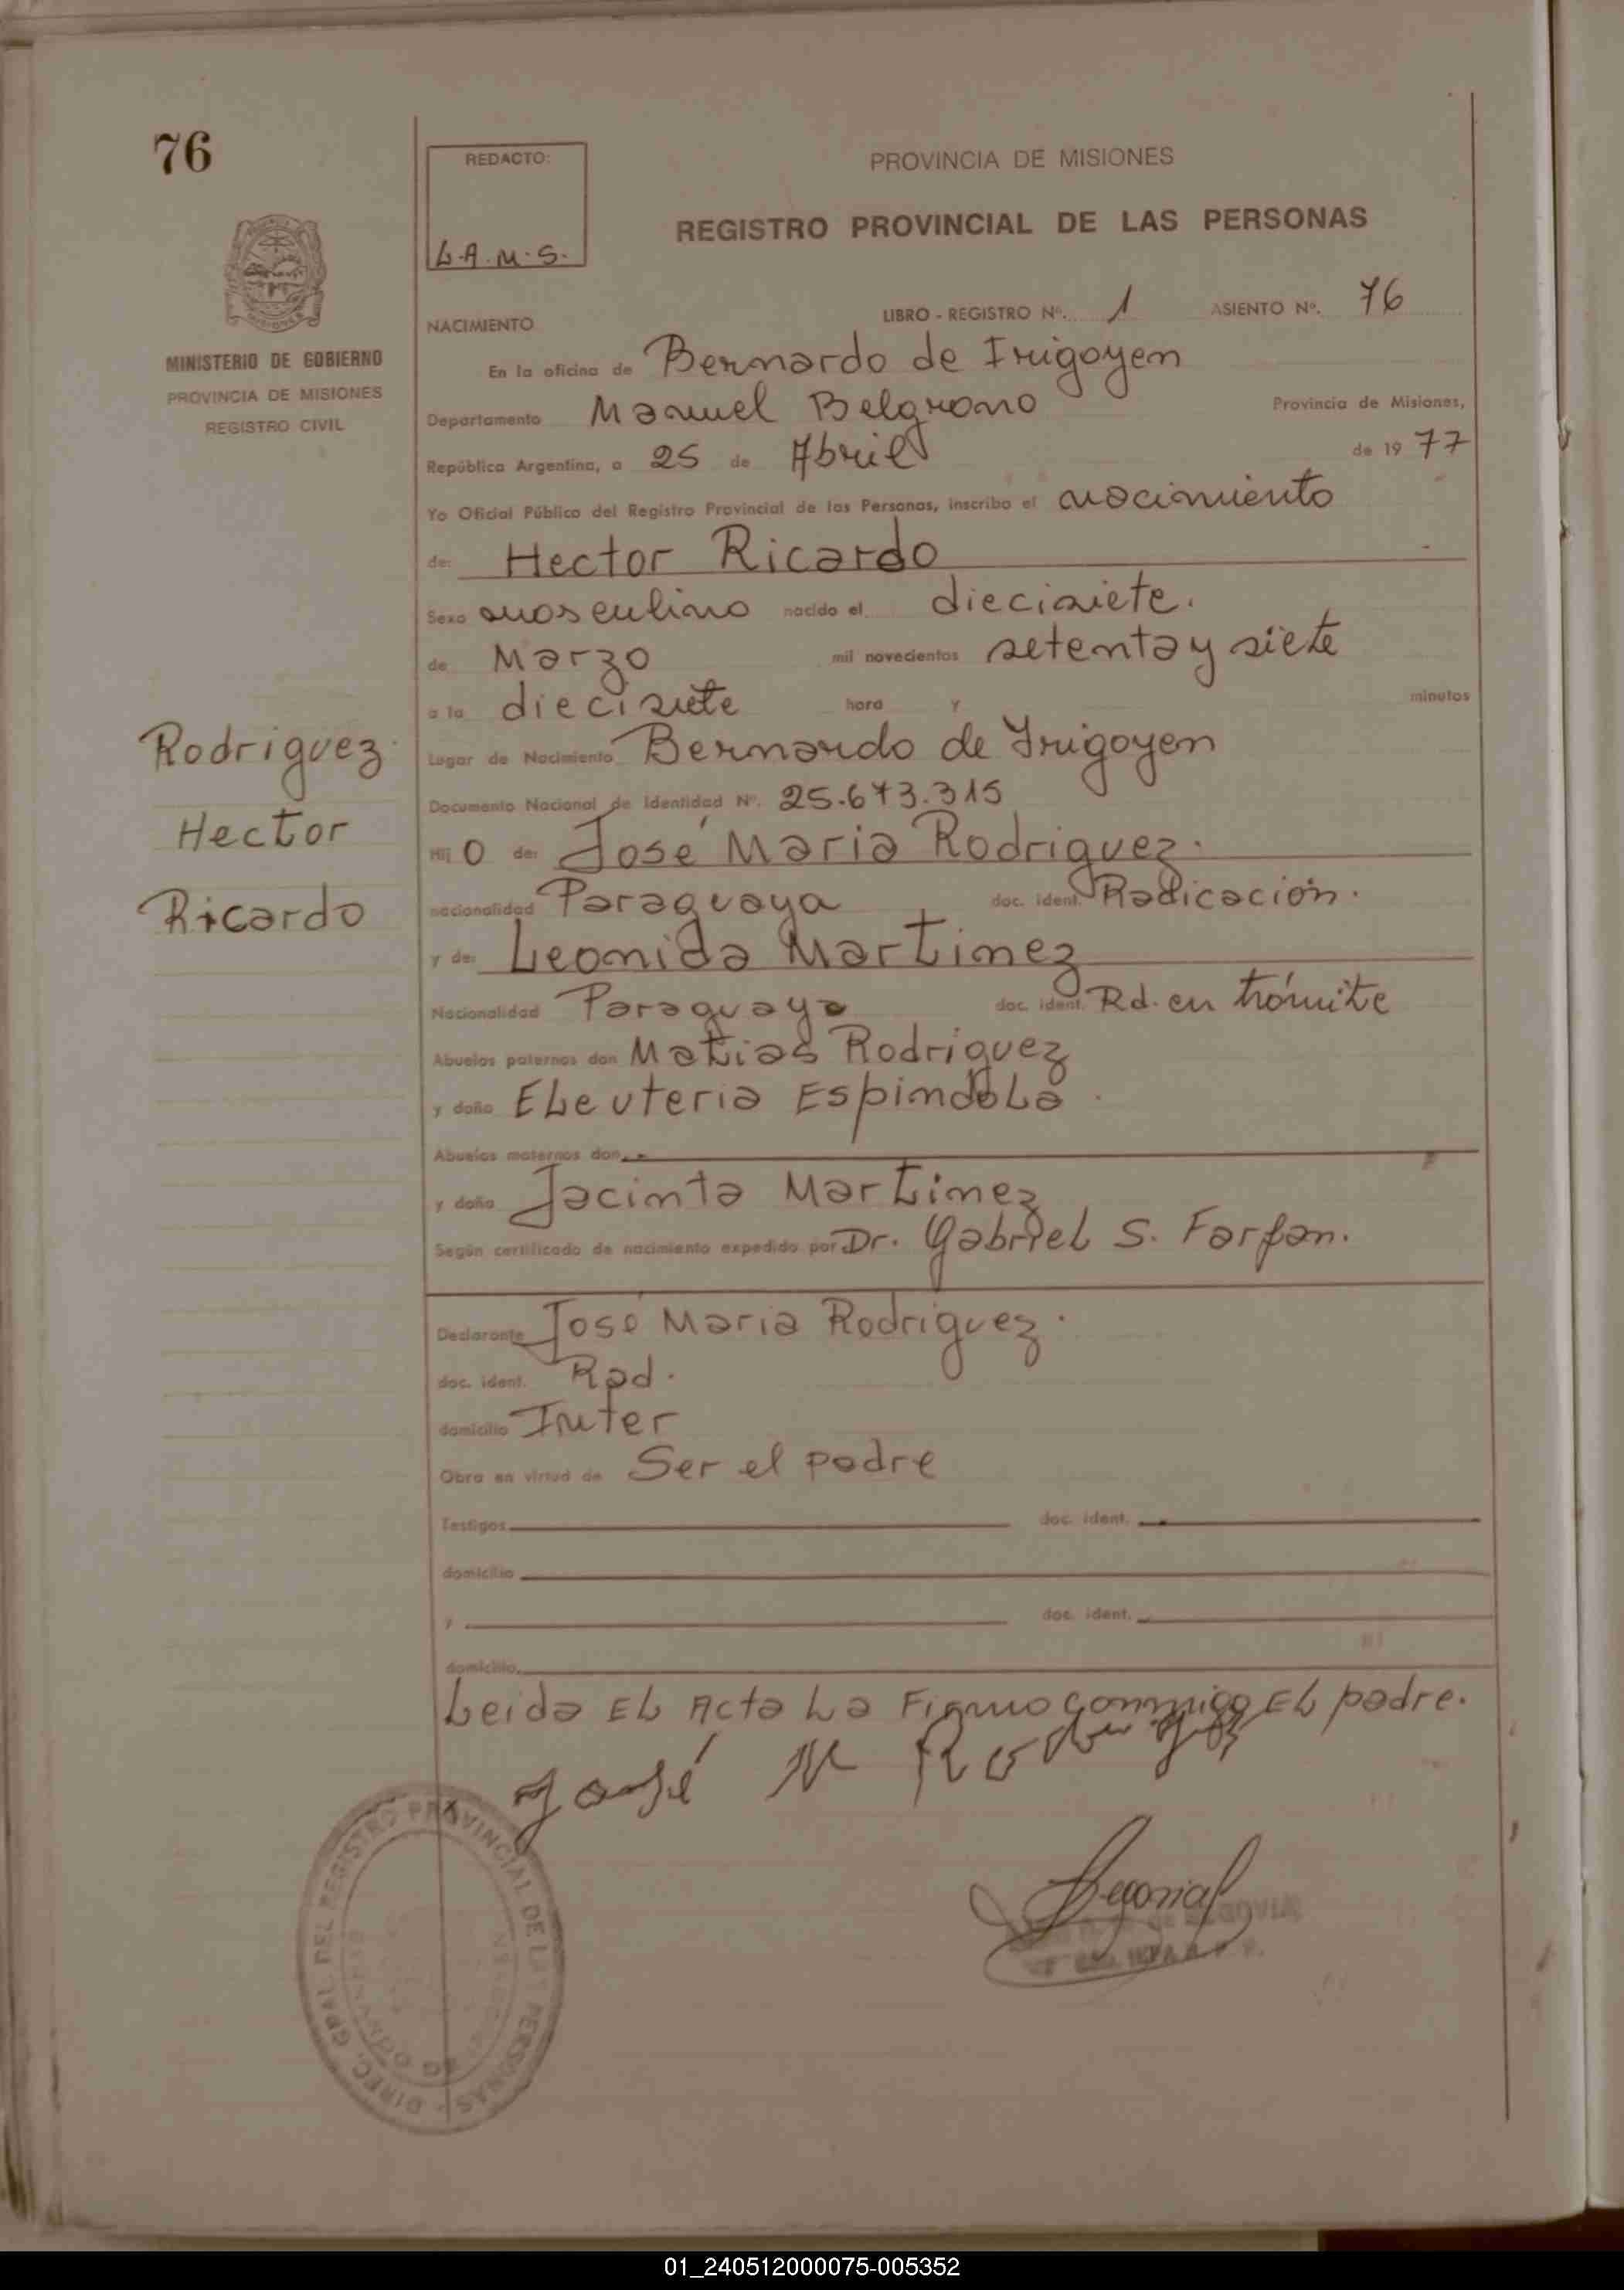 76
REDACTO:
L.A.M.S.
PROVINCIA DE MISIONES
REGISTRO PROVINCIAL DE LAS PERSONAS
MINISTERIO DE GOBIERNO
PROVINCIA DE MISIONES
REGISTRO CIVIL
NACIMIENTO LIBRO - REGISTRO Nº. 1 ASIENTO Nº. 76
En la oficina de Bernardo de Irigoyen
Departamento Manuel Belgrano Provincia de Misiones,
República Argentina, a 25 de Abril de 1977
Yo Oficial Público del Registro Provincial de las Personas, inscribo el nacimiento
de: Hector Ricardo
Sexo masculino nacido el diecisiete.
de Marzo mil novecientos setenta y siete
a la diecisiete hora y minutos
Lugar de Nacimiento Bernardo de Irigoyen
Documento Nacional de Identidad Nº. 25.673.315
Hijo de: José Maria Rodriguez.
nacionalidad Paraguaya doc. ident. Radicación.
y de: Leonida Martinez
Nacionalidad Paraguaya doc. ident. Rd. en trámite
Abuelos paternos don Matias Rodriguez
y doña Eleuteria Espindola.
Abuelos maternos don
y doña Jacinta Martinez
Según certificado de nacimiento expedido por Dr. Gabriel S. Farfan.
Rodriguez
Hector
Ricardo
Declarante José Maria Rodriguez.
doc. ident. Rad.
domicilio Inter
Obra en virtud de Ser el padre
Testigos doc. ident.
domicilio
y doc. ident.
domicilio
Leida EL Acta La Firma conmigo EL padre.
José M Rodriguez
DIREC. GRAL. DEL REGISTRO PROVINCIAL DE LAS PERSONAS
01_240512000075-005352